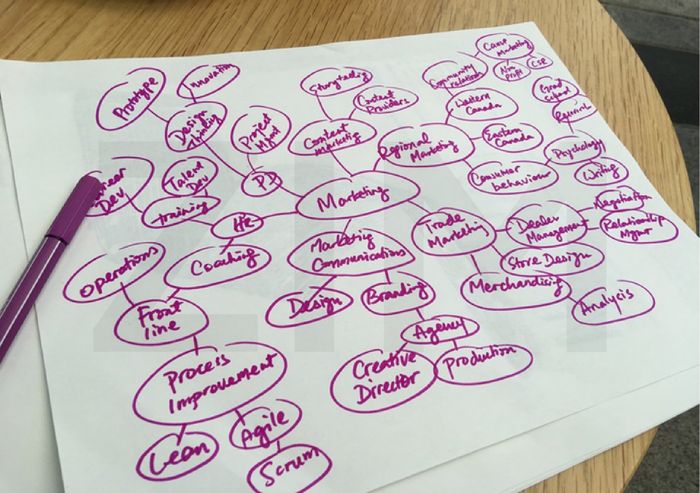 Cause
Marketing
Community
relations
Non
profit
CSR
Innovation
Prototype
Storytelling
Content
Providers
Western
Canada
Grad
school
Design
Thinking
Project
Mgmt
Content
marketing
Regional
Marketing
Eastern
Canada
Research
Dev
Talent
Dev
PD
Consumer
behaviour
Psychology
Writing
training
Marketing
HR
Trade
Marketing
Dealer
Management
Negotiation
Relationship
Mgmr
Operations
Coaching
Marketing
Communications
Store Design
Front
line
Design
Branding
Merchandising
Analysis
Agency
Process
Improvement
Creative
Director
Production
Lean
Agile
Scrum